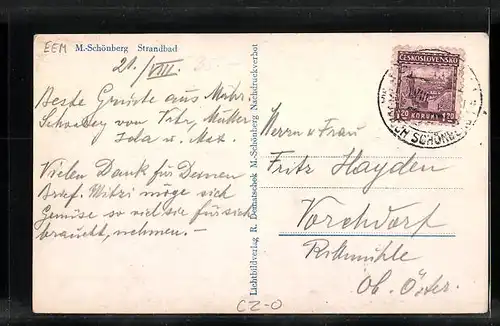 EEM
M.-Schönberg Strandbad
21./VIII.
Beste Grüße aus Mähr.
Schönberg von Fritz, Mutter
Ida u. Max.
Vielen Dank für Deinen
Brief. Mitzi möge sich
Gemüse so viel sie für sich
braucht, nehmen. –
Lichtbildverlag R. Dematschek M.-Schönberg Nachdruckverbot
ČESKOSLOVENSKO
1.20 KORUNA 1.20
SCHÖNBERG
Herrn u Frau
Fritz Hayden
Vorchdorf
Ob. Öster.
CZ-O